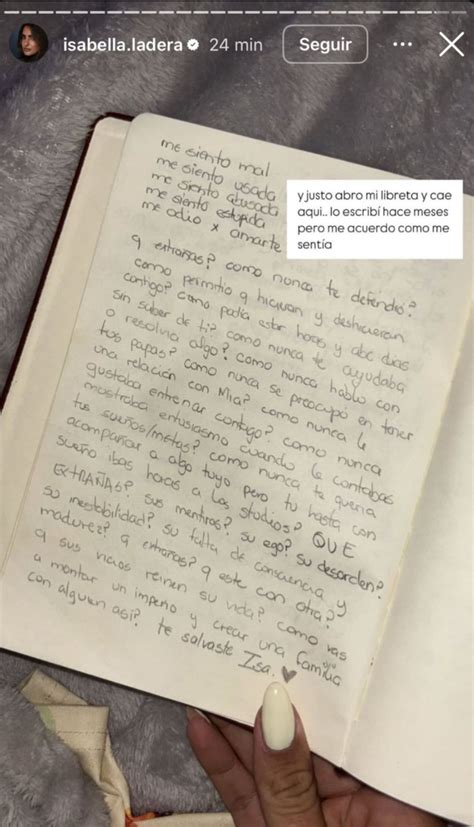 isabella.ladera 24 min
Seguir
me siento mal
me siento usada
me siento abusada
me siento estupida
me odio x amarte
y justo abro mi libreta y cae
aqui.. lo escribí hace meses
pero me acuerdo como me
sentía
q extrañas? como nunca te defendió?
como permitio q hicieran y deshicieran
contigo? como podia estar horas y dias
sin saber de ti? como nunca te ayudaba
o resolvia algo? como nunca hablo con
tus papas? como nunca se preocupó en tener
una relación con Mia? como nunca le
gustaba entrenar contigo? como nunca
mostraba entusiasmo cuando le contabas
tus sueños/metas? como nunca te queria
acompañar a algo tuyo pero tu hasta con
sueño ibas horas a los studios? QUE
EXTRAÑAS? sus mentiras? su ego? su desorden?
su inestabilidad? su falta de consciencia y
madurez? q extrañas? q este con otra?
q sus vicios reinen su vida? como vas
a montar un imperio y crear una familia
con alguien asi? te salvaste Isa.